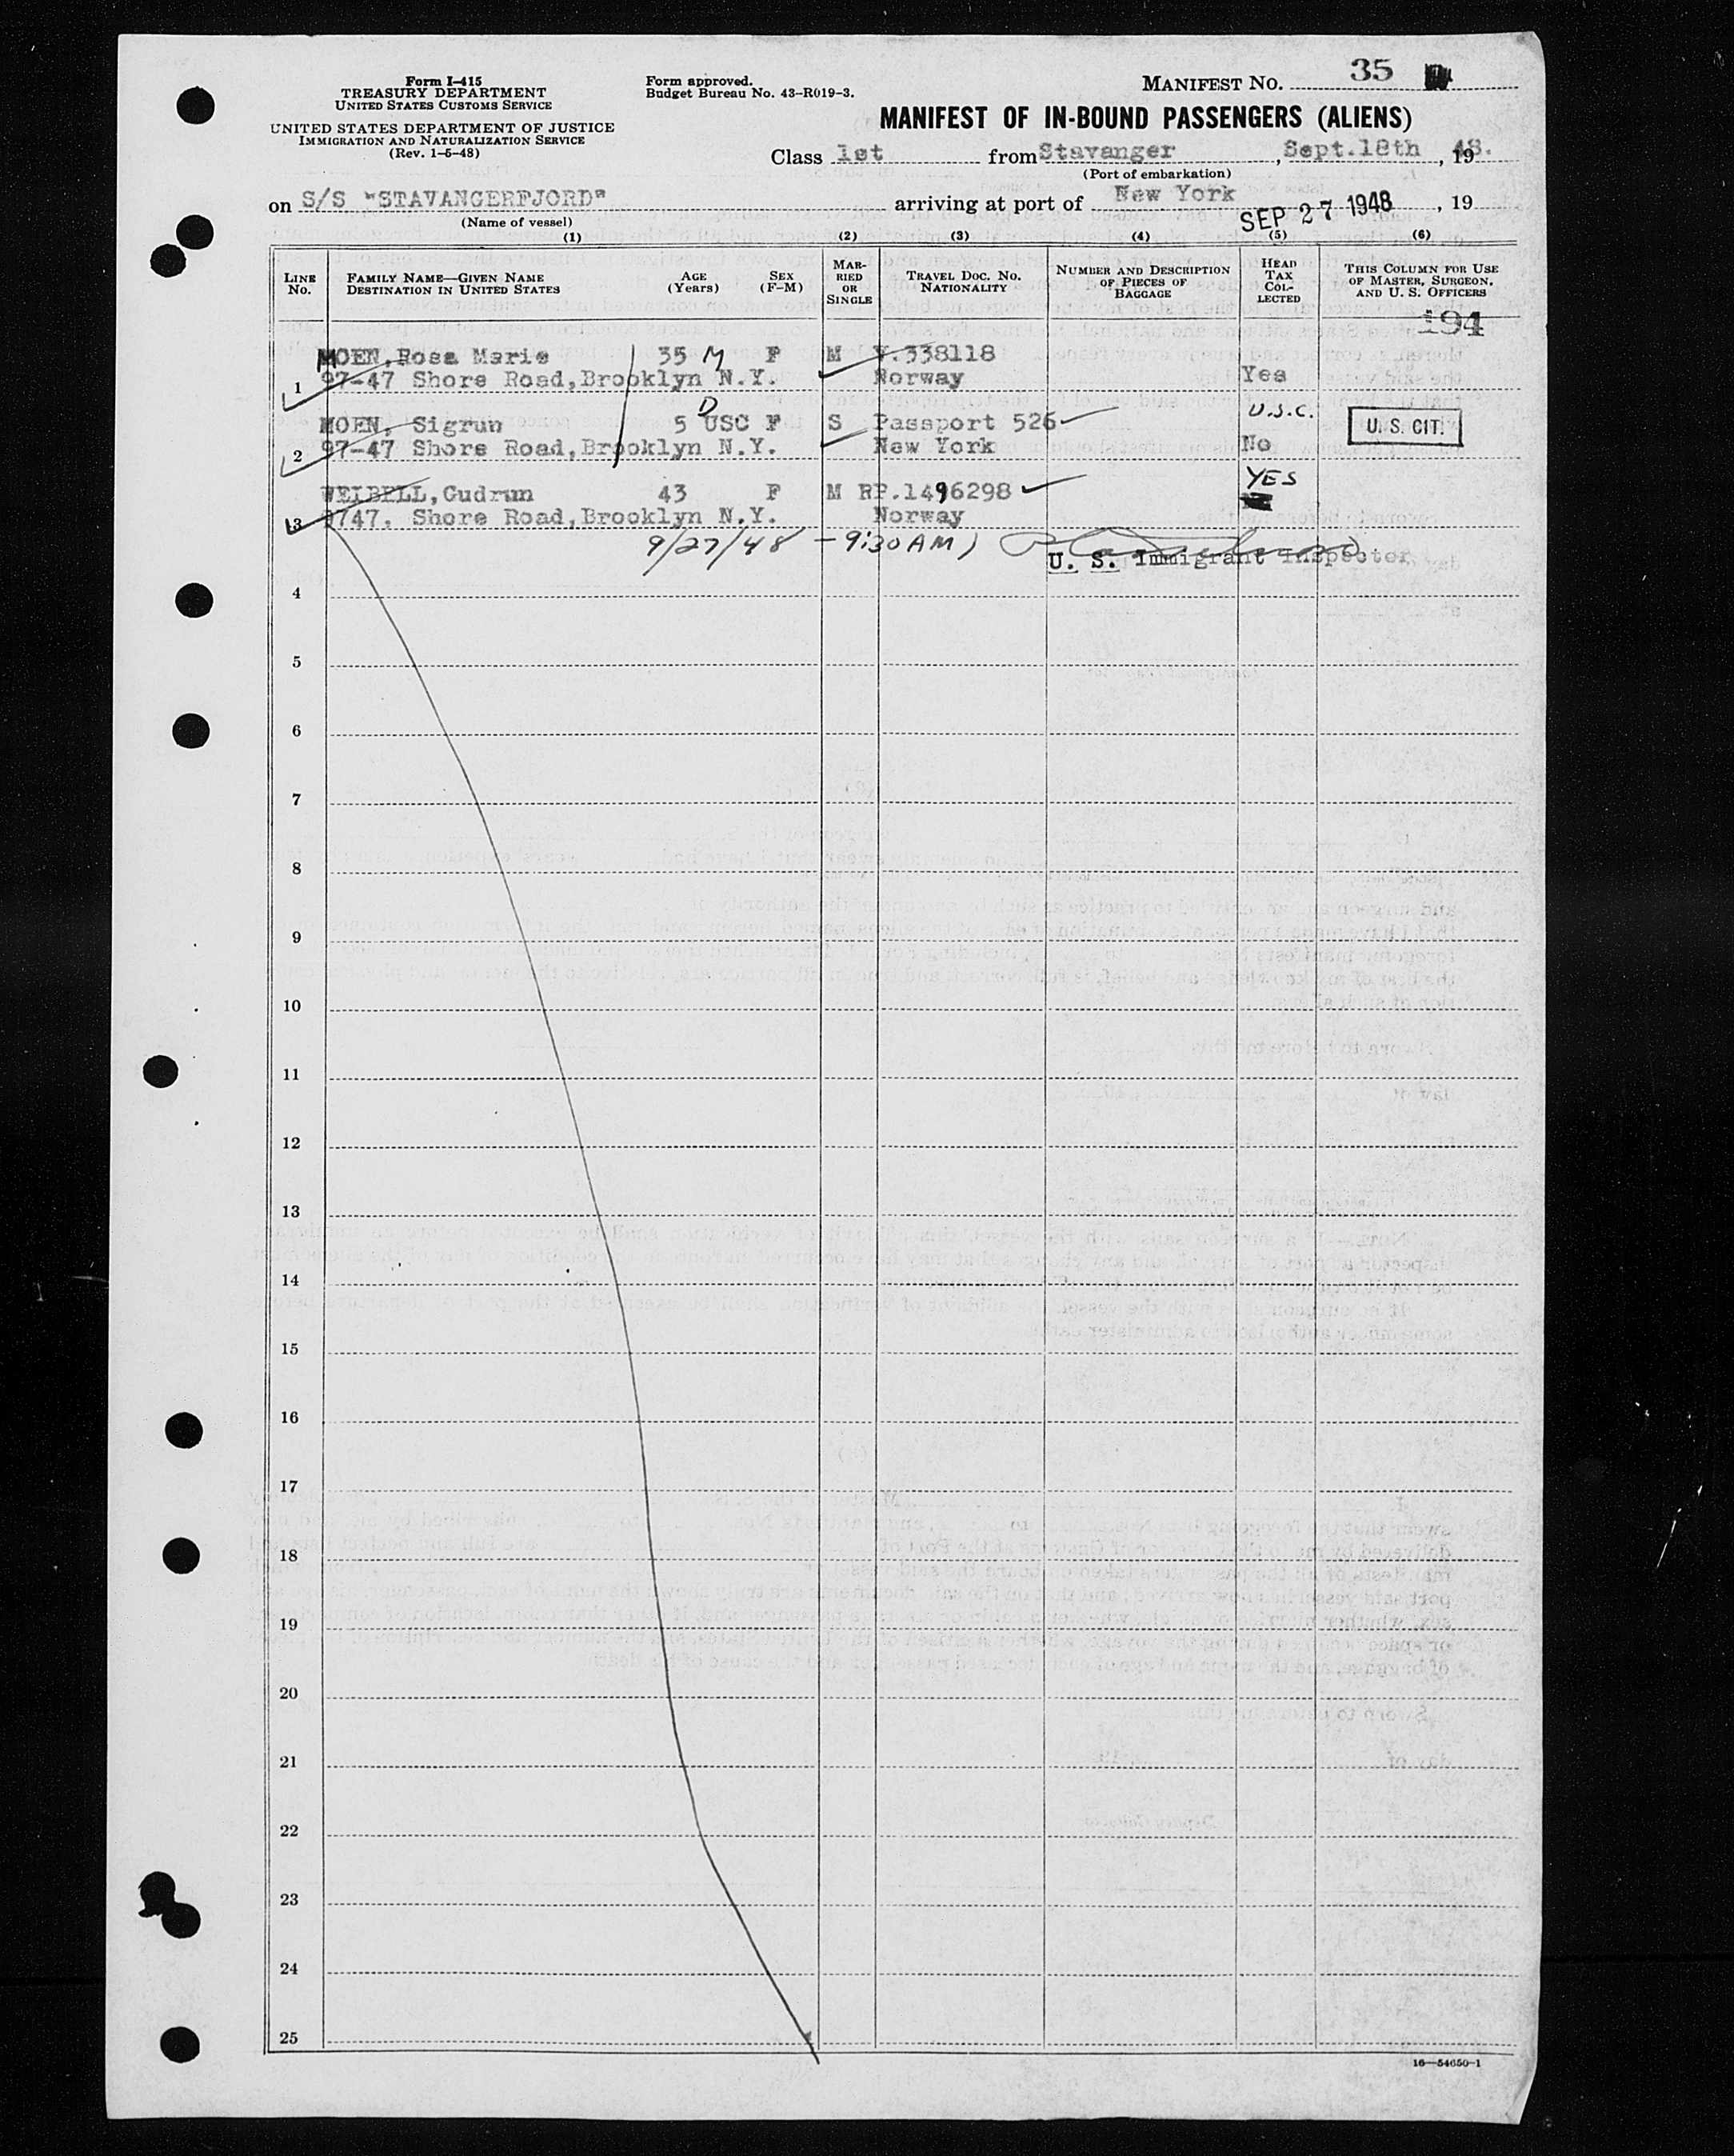 Form I-415
TREASURY DEPARTMENT
UNITED STATES CUSTOMS SERVICE
UNITED STATES DEPARTMENT OF JUSTICE
IMMIGRATION AND NATURALIZATION SERVICE
(Rev. 1-5-48)
Form approved.
Budget Bureau No. 43-R019-3.
MANIFEST NO. 35
MANIFEST OF IN-BOUND PASSENGERS (ALIENS)
Class 1st from Stavanger, Sept.18th, 1948.
(Port of embarkation)
on S/S "STAVANGERFJORD" arriving at port of New York SEP 27 1948, 19
(Name of vessel)
(1) (2) (3) (4) (5) (6)
LINE No. FAMILY NAME—GIVEN NAME DESTINATION IN UNITED STATES AGE (Years) SEX (F-M) MARRIED OR SINGLE TRAVEL DOC. NO. NATIONALITY NUMBER AND DESCRIPTION OF PIECES OF BAGGAGE HEAD TAX COLLECTED THIS COLUMN FOR USE OF MASTER, SURGEON, AND U. S. OFFICERS
194
MOEN, Rosa Marie 35 M F M V.338118
1 97-47 Shore Road, Brooklyn N.Y. Norway Yes
MOEN, Sigrun 5 D USC F S Passport 526 U.S.C. U. S. CIT.
2 97-47 Shore Road, Brooklyn N.Y. New York No
WEIBELL, Gudrun 43 F M RP.1496298 YES
3 9747. Shore Road, Brooklyn N.Y. Norway
9/27/48 - 9:30 AM)
U. S. Immigrant Inspector
4
5
6
7
8
9
10
11
12
13
14
15
16
17
18
19
20
21
22
23
24
25
16—54650-1